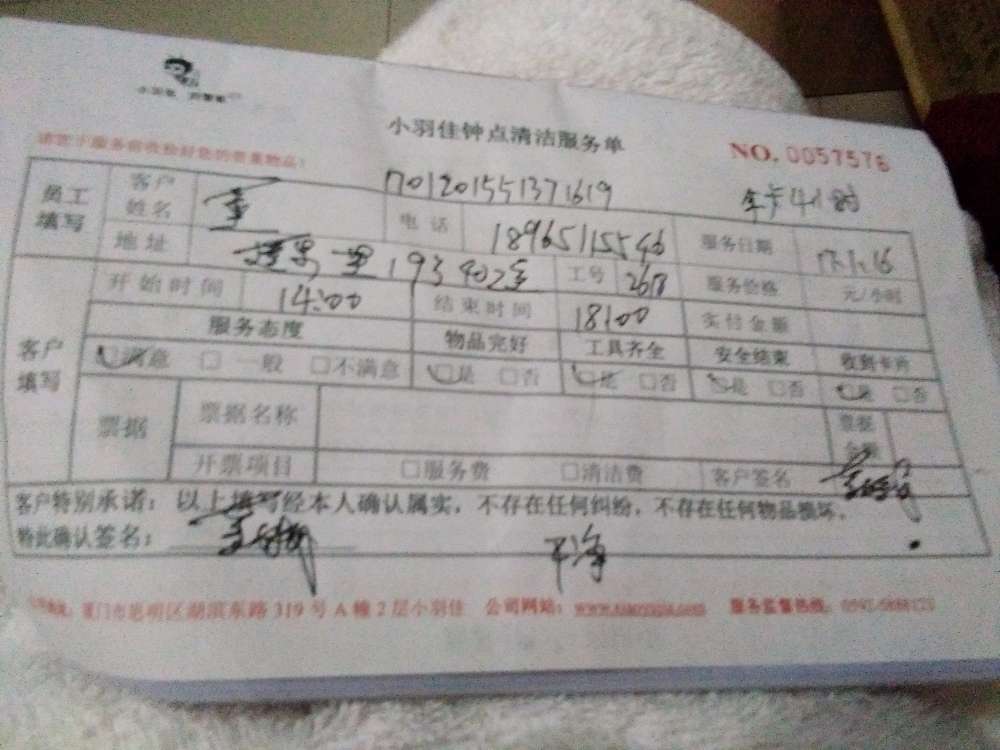 小羽佳
小羽佳钟点清洁服务单
NO. 0057576
请您于服务前收拾好您的贵重物品!
701201551371619
4小时
员工填写
客户姓名
电话 18965115546 服务日期 17.1.16
地址 193 402室 工号 服务价格 元/小时
客户填写
开始时间 14:00 结束时间 18:00 实付金额
服务态度 物品完好 工具齐全 安全结束 收到卡片
满意 一般 不满意 是 否 是 否 是 否 是 否
票据 票据名称 票据金额
开票项目 服务费 清洁费 客户签名
客户特别承诺:以上填写经本人确认属实,不存在任何纠纷,不存在任何物品损坏。
特此确认签名:
干净
厦门市思明区湖滨东路319号A幢2层小羽佳 公司网站: 服务监督热线: